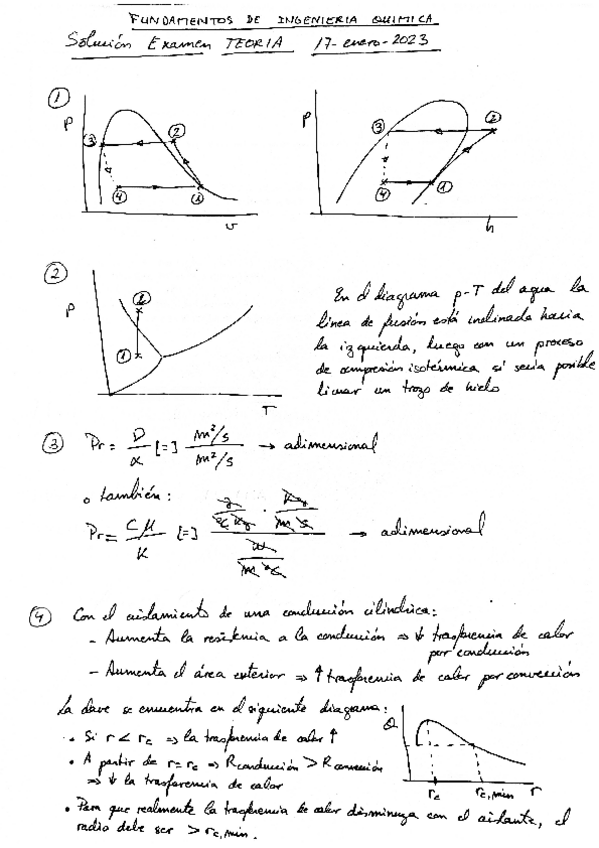 FUNDAMENTOS DE INGENIERIA QUIMICA
Solución Examen TEORIA 17-enero-2023
①
P
③ ②
④ ①
v
P
③ ②
④ ①
h
②
P
②
①
T
En el diagrama p-T del agua la
línea de fusión está inclinada hacia
la izquierda, luego con un proceso
de compresión isotérmica sí sería posible
licuar un trozo de hielo
③ Pr = ν/α [=] m²/s / m²/s → adimensional
o también:
Pr = Cμ/K [=] J/ºC kg · kg/m s / w/m ºC → adimensional
④ Con el aislamiento de una conducción cilíndrica:
- Aumenta la resistencia a la conducción ⇒ ↓ trasferencia de calor
por conducción
- Aumenta el área exterior ⇒ ↑ trasferencia de calor por convección
La clave se encuentra en el siguiente diagrama:
• Si r < rc ⇒ la trasferencia de calor ↑
• A partir de r = rc ⇒ Rconducción > Rconvección
⇒ ↓ la trasferencia de calor
Q
rc rc,min r
• Para que realmente la trasferencia de calor disminuya con el aislante, el
radio debe ser > rc,min.